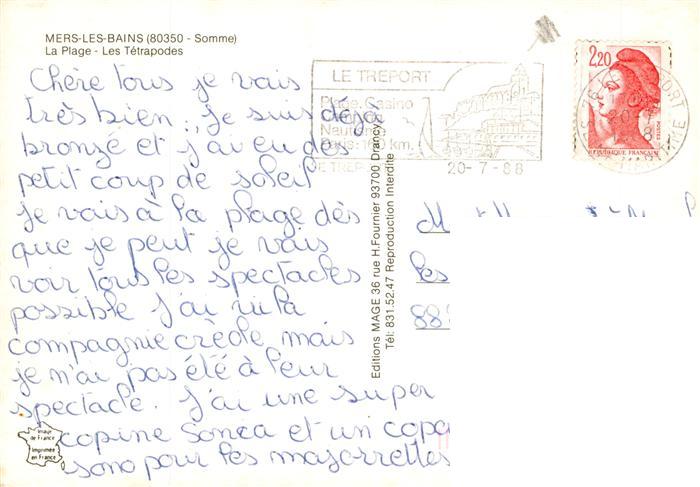 MERS-LES-BAINS (80350 - Somme)
La Plage - Les Tétrapodes
Chère tous je vais
très bien. Je suis déjà
bronzé et j'ai eu des
petit coup de soleil
je vais à la plage dès
que je peut je vais
voir tous les spectacles
possible J'ai vu la
compagnie créole mais
je n'ai pas été à leur
spectacle. J'ai une super
copine Sonca et un copa
sono pour les majorettes
Image
de France
Imprimée
en France
Editions MAGE 36 rue H.Fournier 93700 Drancy
Tél: 831.52.47 Reproduction Interdite
LE TREPORT
Plage, Casino
Nautisme
Paris: 160 km.
20-7-88
2,20
REPUBLIQUE FRANÇAISE
M
les
88